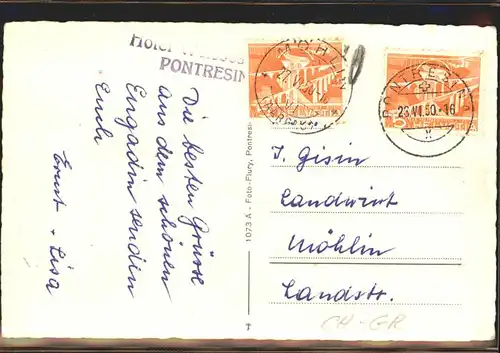 Hotel
PONTRESIN
Die besten Grüsse
aus dem schönen
Engadin senden
Euch
Ernst + Lisa
1073 A - Foto-Flury, Pontresi
MÖHLIN
(AARGAU)
PONTRESINA
23.VI.50-16
J. Gisin
Landwirt
Möhlin
Landstr.
CH-GR